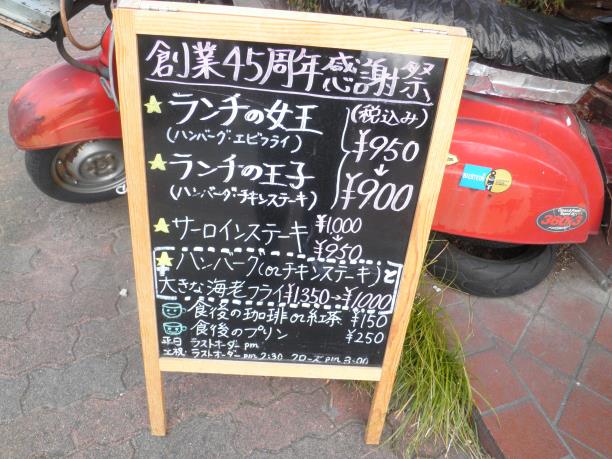 創業45周年感謝祭
ランチの女王 (税込み)
(ハンバーグ・エビフライ) ¥950
ランチの王子 ↓
(ハンバーグ・チキンステーキ) ¥900
サーロインステーキ ¥1,000
↓
¥950
ハンバーグ(orチキンステーキ)と
大きな海老フライ¥1350→¥1000
食後の珈琲or紅茶 ¥150
食後のプリン ¥250
平日 ラストオーダー pm
土祝 ラストオーダー pm 2:30 クローズ pm 3:00